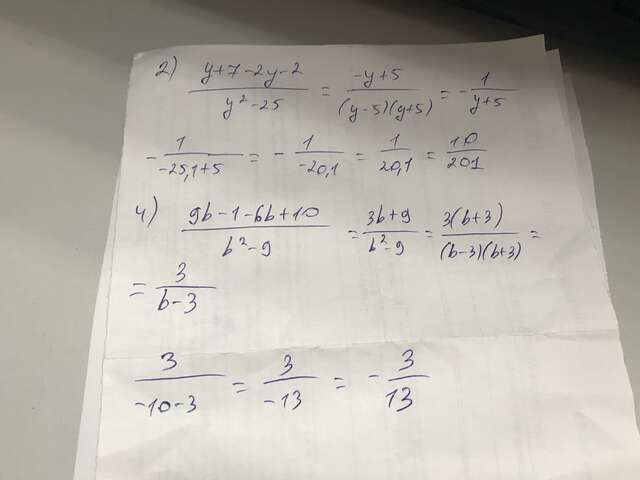 2) (y+7-2y-2)/(y²-25) = (-y+5)/((y-5)(y+5)) = -1/(y+5)
-1/(-25,1+5) = -1/(-20,1) = 1/20,1 = 10/201
4) (9b-1-6b+10)/(b²-9) = (3b+9)/(b²-9) = 3(b+3)/((b-3)(b+3)) =
= 3/(b-3)
3/(-10-3) = 3/(-13) = -3/13